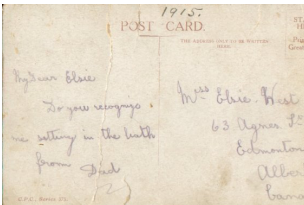 1915.
POST CARD.
THE ADDRESS ONLY TO BE WRITTEN
HERE.
My Dear Elsie
Do you recognize
me sitting in the
from Dad
Miss Elsie West
63 Agnes St
Edmonton
Alber
Cana